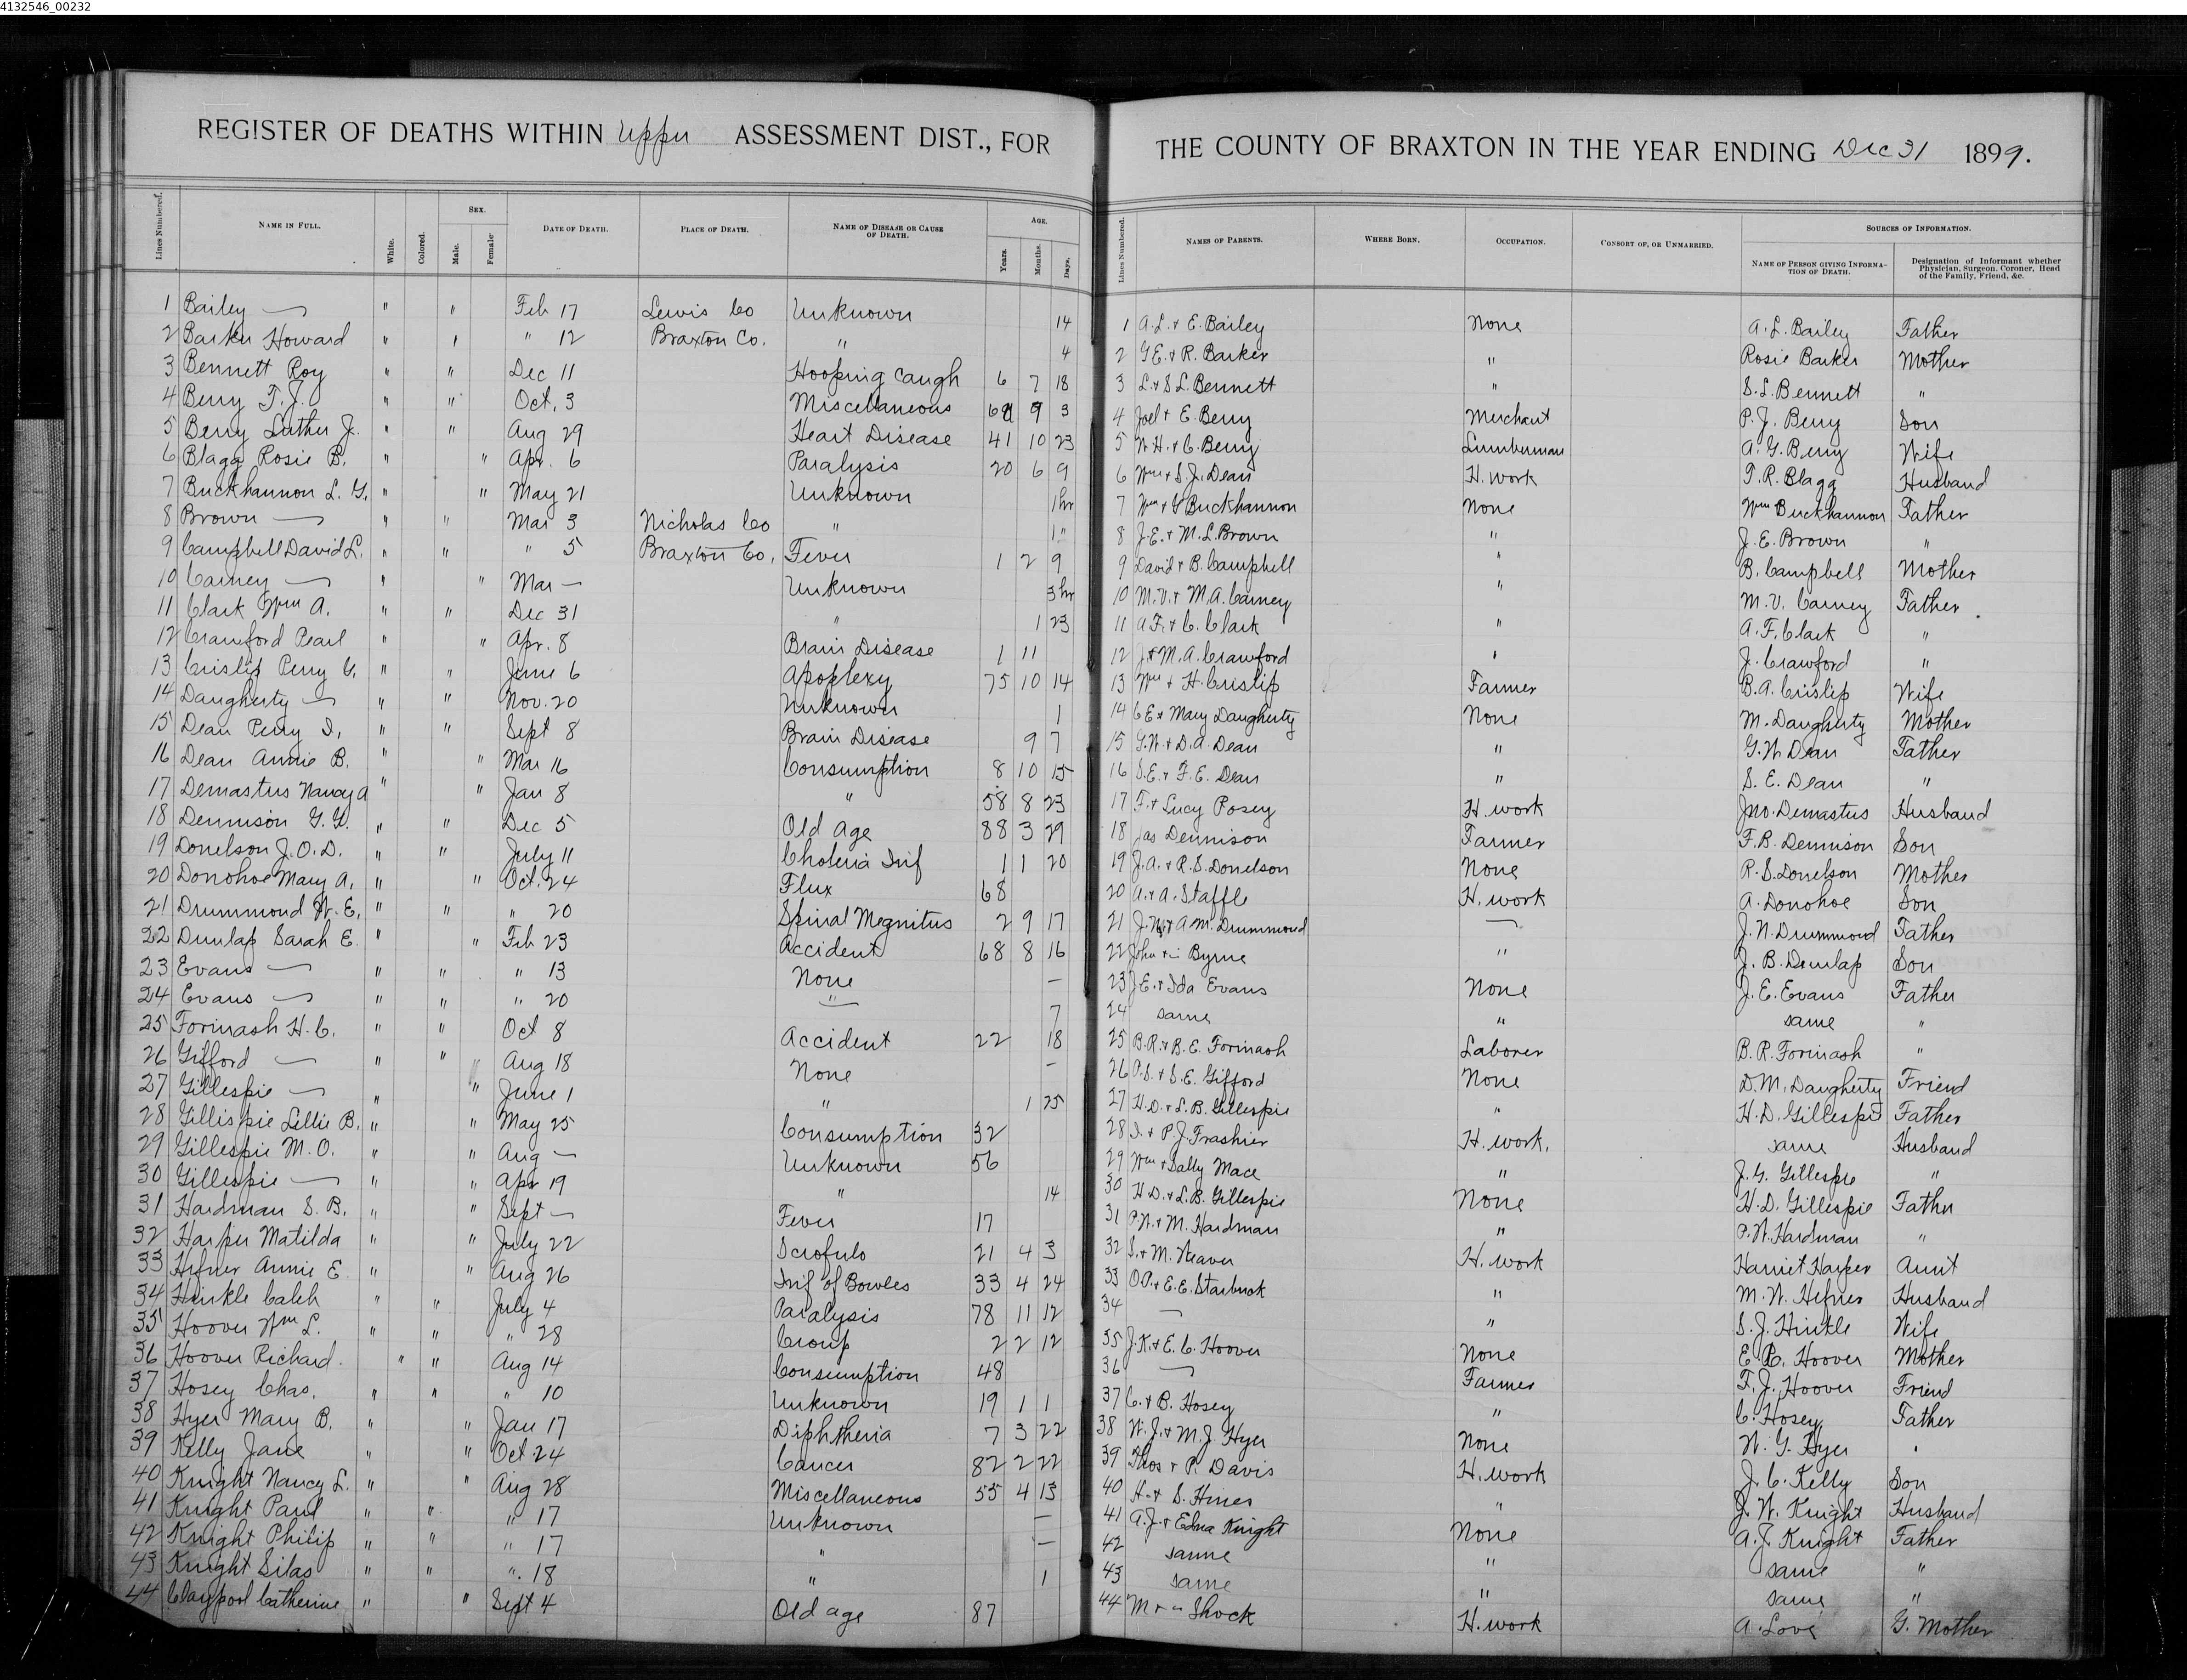 4132546_00232
REGISTER OF DEATHS WITHIN Upper ASSESSMENT DIST., FOR THE COUNTY OF BRAXTON IN THE YEAR ENDING Dec 31 1899.
Lines Numbered. NAME IN FULL. White. Colored. SEX. Male. Female. DATE OF DEATH. PLACE OF DEATH. NAME OF DISEASE OR CAUSE OF DEATH. AGE. Years. Months. Days. Lines Numbered. NAMES OF PARENTS. WHERE BORN. OCCUPATION. CONSORT OF, OR UNMARRIED. SOURCES OF INFORMATION. NAME OF PERSON GIVING INFORMATION OF DEATH. Designation of Informant whether Physician, Surgeon, Coroner, Head of the Family, Friend, &c.
1 Bailey — " " Feb 17 Lewis Co Unknown 14 1 A. L. & E. Bailey None A. L. Bailey Father
2 Barker Howard " " " 12 Braxton Co. " 4 2 G E. & R. Barker " Rosie Barker Mother
3 Bennett Roy " " Dec 11 Hooping Caugh 6 7 18 3 L. & S L. Bennett " S. L. Bennett "
4 Berry F. J. " " Oct. 3 Miscellaneous 9 3 4 Joel & E. Berry Merchant P. J. Berry Son
5 Berry Luther J. " " Aug 29 Heart Disease 41 10 23 5 W. H. & C. Berry Lumberman A. G. Berry Wife
6 Blagg Rosie B. " " Apr. 6 Paralysis 20 6 9 6 Wm & S. J. Dean H. work T. R. Blagg Husband
7 Buckhannon L. G. " " May 21 Unknown 1 hr 7 Wm & G Buckhannon None Wm Buckhannon Father
8 Brown — " " Mar 3 Nicholas Co " 1 " 8 J. E. & M. L. Brown " J. E. Brown "
9 Campbell David L. " " " 5 Braxton Co. Fever 1 2 9 9 David & B. Campbell " B. Campbell Mother
10 Carney — " " Mar — Unknown 3 hr 10 M. V. & M. A. Carney " M. V. Carney Father
11 Clark Wm A. " " Dec 31 " 1 23 11 A F. & C. Clark " A. F. Clark "
12 Crawford Pearl " " Apr. 8 Brain Disease 1 11 12 J. & M. A. Crawford " J. Crawford "
13 Crislip Perry G. " " June 6 Apoplexy 75 10 14 13 Wm & H. Crislip Farmer B. A. Crislip Wife
14 Daugherty — " " Nov. 20 Unknown 1 14 C E & Mary Daugherty None M. Daugherty Mother
15 Dean Perry I. " " Sept 8 Brain Disease 9 7 15 G. W. & D. A. Dean " G. W. Dean Father
16 Dean Annie B. " " Mar 16 Consumption 8 10 15 16 S. E. & F. E. Dean " S. E. Dean "
17 Demastus Nancy A " " Jan 8 " 58 8 23 17 F. & Lucy Posey H. work Jno. Demastus Husband
18 Dennison G. G. " " Dec 5 Old Age 88 3 29 18 Jas Dennison Farmer F. B. Dennison Son
19 Donelson J. O. D. " " July 11 Choleria Inf 1 1 20 19 J. A. & R. S. Donelson None R. S. Donelson Mother
20 Donohoe Mary A. " " Oct. 24 Flux 68 20 A. & A. Staffle H. work A. Donohoe Son
21 Drummond W. E. " " " 20 Spinal Megnitus 2 9 17 21 J. N. & A M. Drummond — J. N. Drummond Father
22 Dunlap Sarah E. " " Feb 23 Accident 68 8 16 22 John & — Byrne " J. B. Dunlap Son
23 Evans — " " " 13 None — 23 J. E. & Ida Evans None J. E. Evans Father
24 Evans — " " " 20 " 7 24 same " same "
25 Forinash H. C. " " Oct 8 Accident 22 18 25 B. R. & B. E. Forinash Laborer B. R. Forinash "
26 Gifford — " " Aug 18 None — 26 P. S. & S. E. Gifford None D. M. Daugherty Friend
27 Gillespie — " " June 1 " 1 25 27 H. D. & L. B. Gillespie " H. D. Gillespie Father
28 Gillispie Lillie B. " " May 25 Consumption 32 28 I. & P. J. Frashier H. work. same Husband
29 Gillespie M. O. " " Aug — Unknown 56 29 Wm & Sally Mace " J. G. Gillespie "
30 Gillespie — " " Apr 19 " 14 30 H. D. & L. B. Gillespie None H. D. Gillespie Father
31 Hardman S. B. " " Sept — Fever 17 31 P. W. & M. Hardman " P. W. Hardman "
32 Harper Matilda " " July 22 Scrofulo 21 4 3 32 S. & M. Weaver H. work Harriet Harper Aunt
33 Hefner Annie E. " " Aug 26 Inf of Bowles 33 4 24 33 O. P. & E. E. Starbuck " M. W. Hefner Husband
34 Hinkle Caleb " " July 4 Paralysis 78 11 12 34 — " S. J. Hinkle Wife
35 Hoover Wm L. " " " 28 Croup 2 2 12 35 J. K. & E. C. Hoover None E. C. Hoover Mother
36 Hoover Richard. " " Aug 14 Consumption 48 36 — Farmer F. J. Hoover Friend
37 Hosey Chas. " " " 10 Unknown 19 1 1 37 C. & B. Hosey " C. Hosey Father
38 Hyer Mary B. " " Jan 17 Diphtheria 7 3 22 38 W. J. & M. J. Hyer None W. G. Hyer "
39 Kelly Jane " " Oct 24 Cancer 82 2 22 39 Thos & P. Davis H. work J. C. Kelly Son
40 Knight Nancy L. " " Aug 28 Miscellaneous 55 4 13 40 H. & S. Hines " J. W. Knight Husband
41 Knight Paul " " " 17 Unknown — 41 A. J. & Edna Knight None A. J. Knight Father
42 Knight Philip " " " 17 " — 42 same " same "
43 Knight Silas " " " 18 " 1 43 same " same "
44 Claypool Catherine " " Sept 4 Old age 87 44 M & " Shock H. work A. Love G. Mother